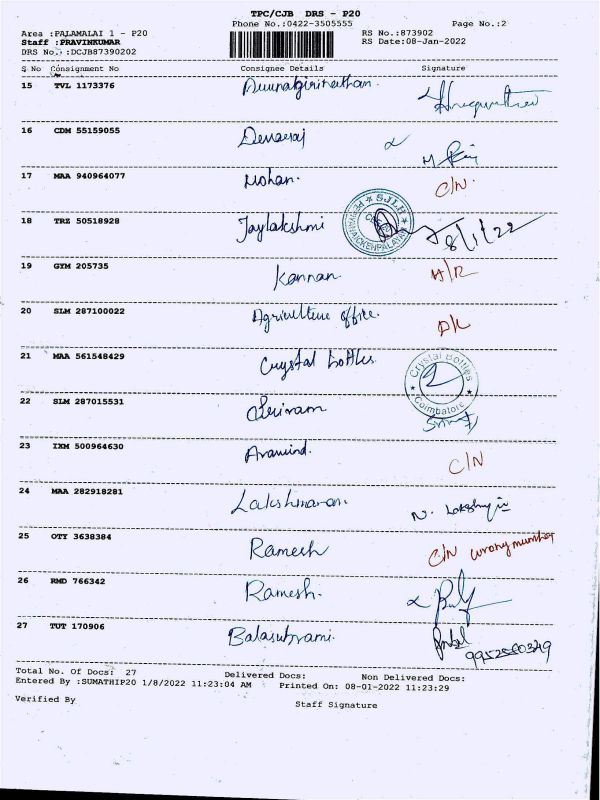 TPC/CJB DRS - P20
Phone No.:0422-3505555 Page No.:2
Area :PALAMALAI 1 - P20 RS No.:873902
Staff :PRAVINKUMAR RS Date:08-Jan-2022
DRS No.:DCJB87390202
S No Consignment No Consignee Details Signature
15 TVL 1173376
16 CDM 55159055 Devaraj
17 MAA 940964077 Mohan. C/N.
SJLH
18 TRZ 50518928 Jaylakshmi 8/1/22
19 GYM 205735 Kannan
20 SLM 287100022 Agriculture office. D/L
21 MAA 561548429 Crystal bottles Crystal Bottles
Coimbatore
22 SLM 287015531 Sriram
23 IXM 500964630 Aravind. C/N
24 MAA 282918281 Lakshmanan. N.
25 OTY 3638384 Ramesh C/N wrong number
26 RMD 766342 Ramesh.
27 TUT 170906 Balasubrami
Total No. Of Docs: 27 Delivered Docs: Non Delivered Docs:
Entered By :SUMATHIP20 1/8/2022 11:23:04 AM Printed On: 08-01-2022 11:23:29
Verified By Staff Signature